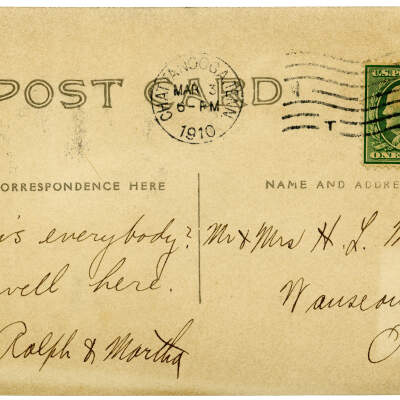 POST CARD
CHATTANOOGA, TENN.
MAR 3
6 - PM
1910
T
ONE
CORRESPONDENCE HERE
NAME AND ADDRE
is everybody?
well here.
Ralph & Martha
Mr & Mrs H. L.
Wauseon